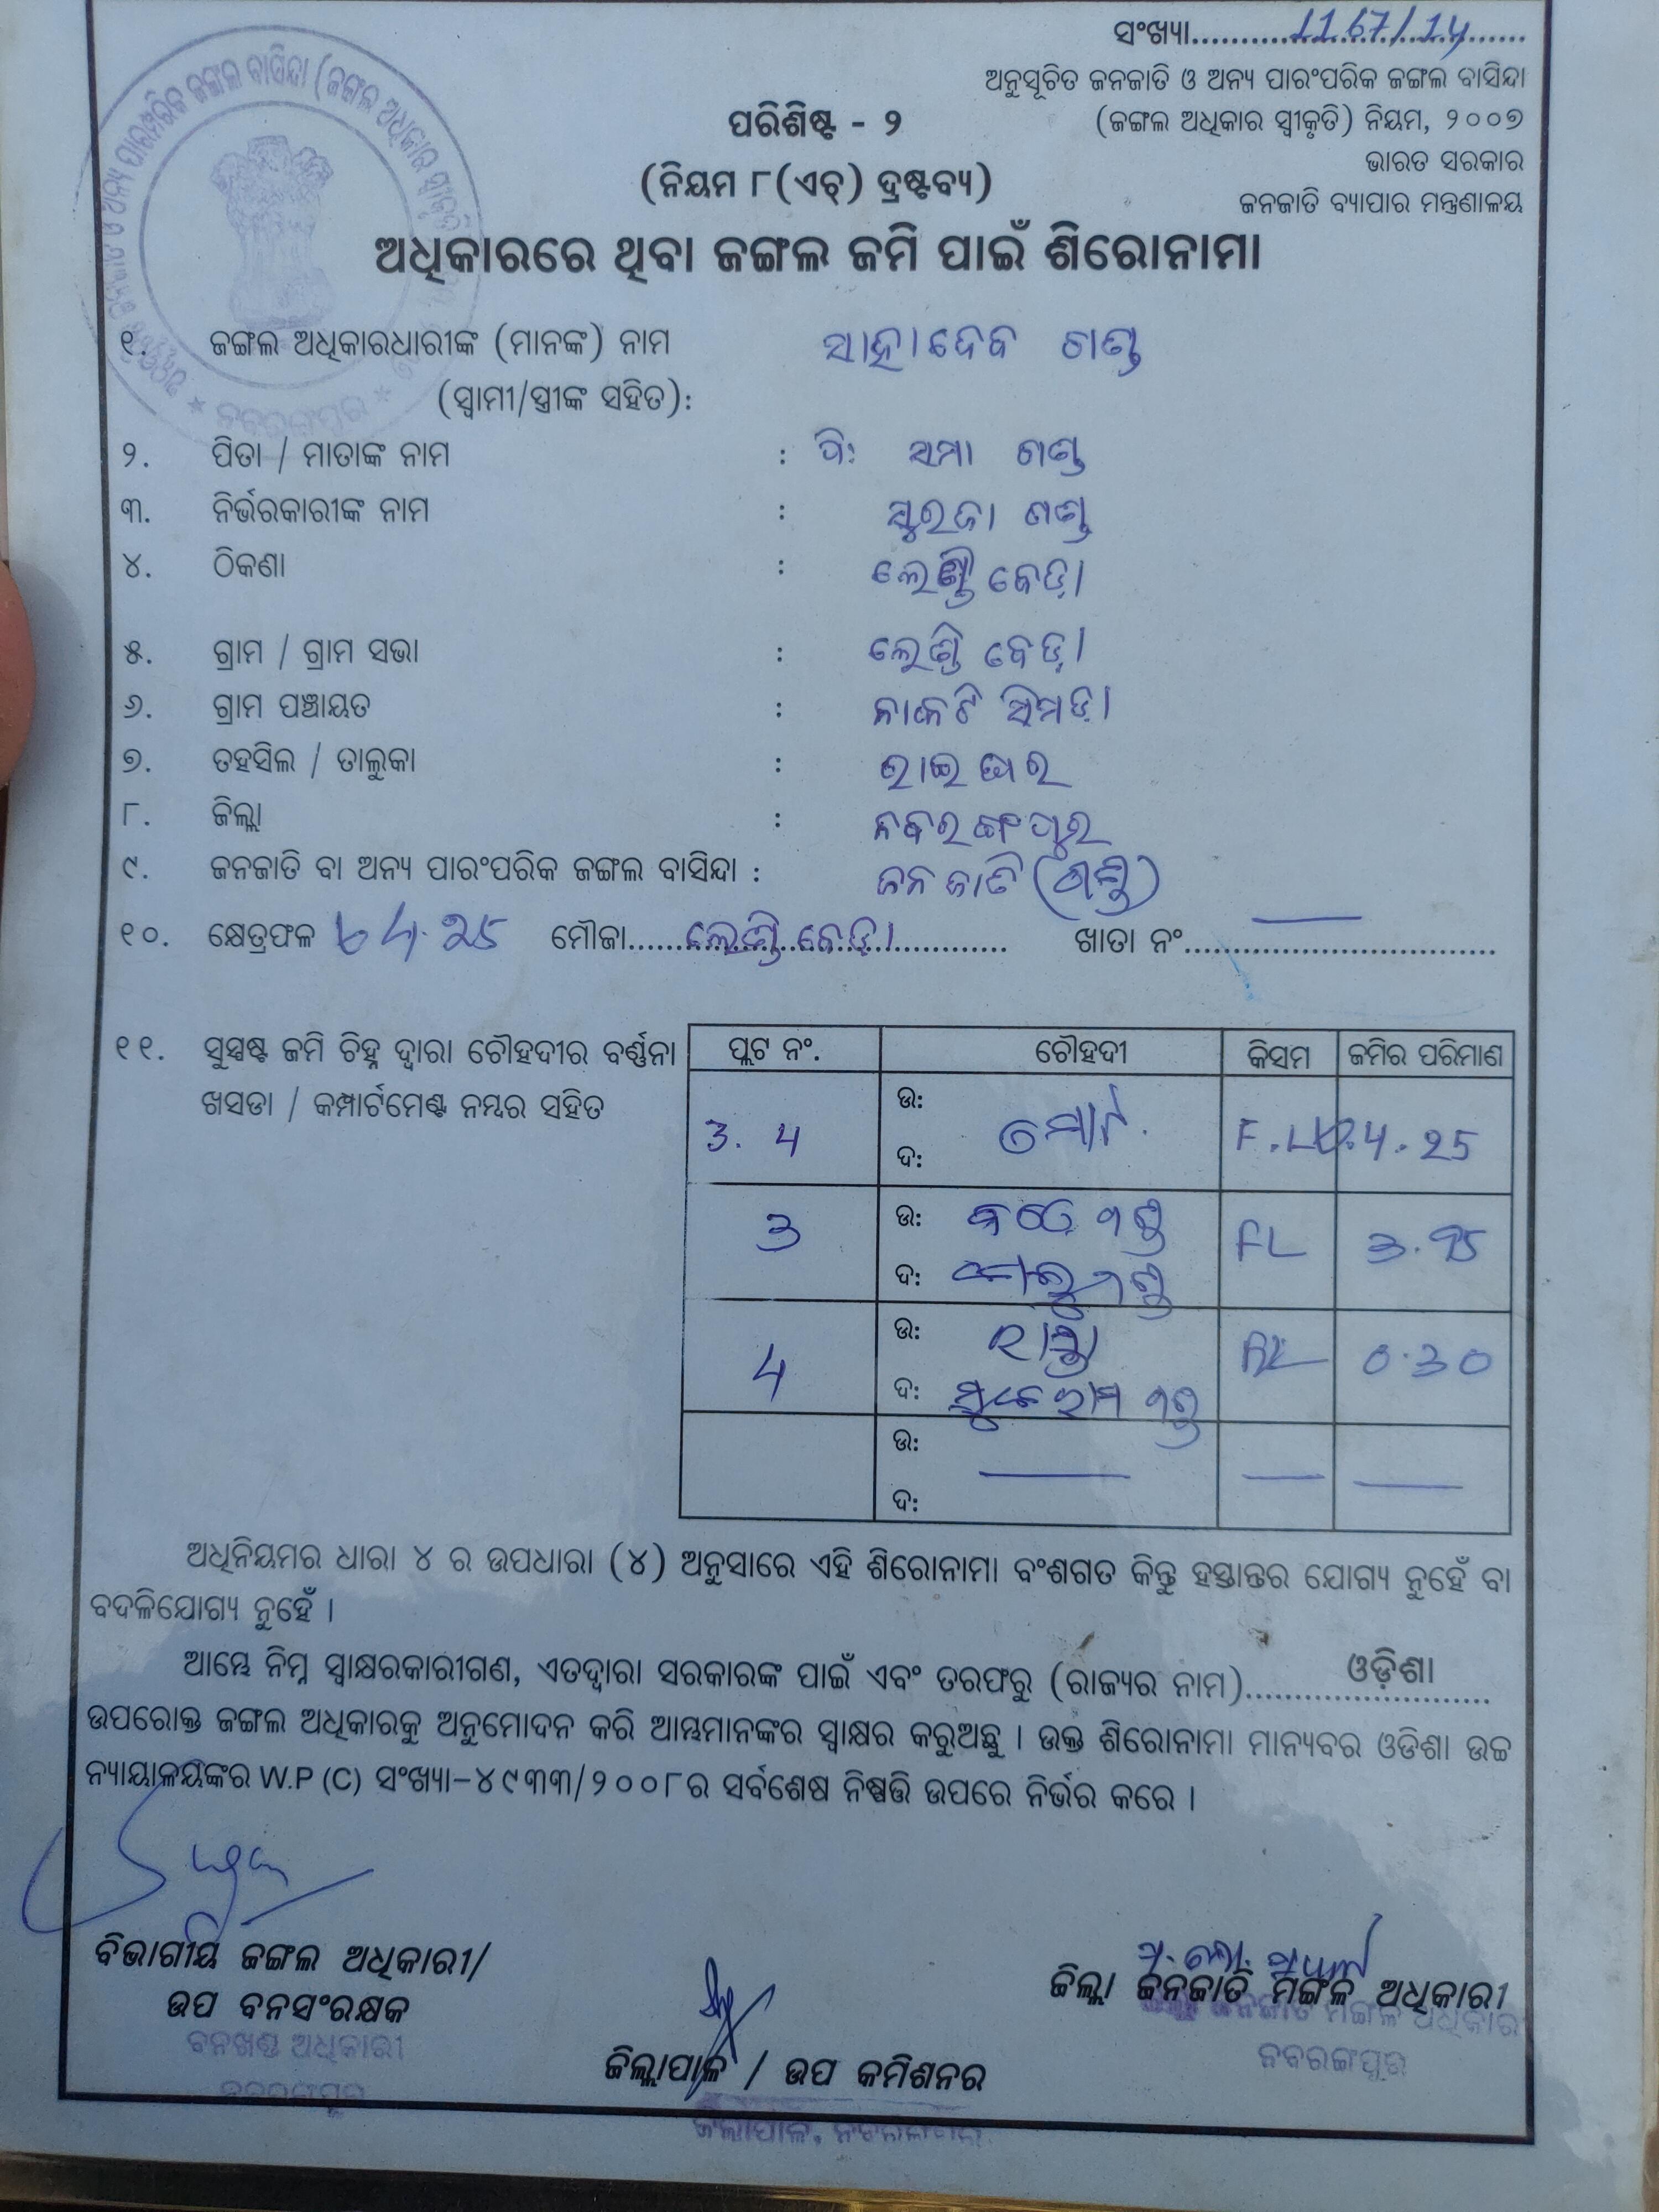 ସଂଖ୍ୟା....1167/14....
ଅନୁସୂଚିତ ଜନଜାତି ଓ ଅନ୍ୟ ପାରଂପରିକ ଜଙ୍ଗଲ ବାସିନ୍ଦା
(ଜଙ୍ଗଲ ଅଧିକାର ସ୍ୱୀକୃତି) ନିୟମ, ୨୦୦୭
ଭାରତ ସରକାର
ଜନଜାତି ବ୍ୟାପାର ମନ୍ତ୍ରଣାଳୟ
ପରିଶିଷ୍ଟ - ୨
(ନିୟମ ୮(ଏଚ୍) ଦ୍ରଷ୍ଟବ୍ୟ)
ଅଧିକାରରେ ଥିବା ଜଙ୍ଗଲ ଜମି ପାଇଁ ଶିରୋନାମା
୧. ଜଙ୍ଗଲ ଅଧିକାରଧାରୀଙ୍କ (ମାନଙ୍କ) ନାମ ସାହାଦେବ ଗଣ୍ଡ
(ସ୍ୱାମୀ/ସ୍ତ୍ରୀଙ୍କ ସହିତ):
୨. ପିତା / ମାତାଙ୍କ ନାମ : ପି: ସମା ଗଣ୍ଡ
୩. ନିର୍ଭରକାରୀଙ୍କ ନାମ : ସୁରଜା ଗଣ୍ଡ
୪. ଠିକଣା : ଲେଣ୍ଡି ବେଡ଼ା
୫. ଗ୍ରାମ / ଗ୍ରାମ ସଭା : ଲେଣ୍ଡି ବେଡ଼ା
୬. ଗ୍ରାମ ପଞ୍ଚାୟତ : କାକଟି ସିମଡ଼ା
୭. ତହସିଲ / ତାଲୁକା : ରାଇଘର
୮. ଜିଲ୍ଲା : ନବରଙ୍ଗପୁର
୯. ଜନଜାତି ବା ଅନ୍ୟ ପାରଂପରିକ ଜଙ୍ଗଲ ବାସିନ୍ଦା : ଜନଜାତି (ଗଣ୍ଡ)
୧୦. କ୍ଷେତ୍ରଫଳ 4.25 ମୌଜା....ଲେଣ୍ଡି ବେଡ଼ା.... ଖାତା ନଂ....—....
୧୧. ସୁସ୍ପଷ୍ଟ ଜମି ଚିହ୍ନ ଦ୍ୱାରା ଚୌହଦୀର ବର୍ଣ୍ଣନା
ଖସଡା / କମ୍ପାର୍ଟମେଣ୍ଟ ନମ୍ବର ସହିତ
ପ୍ଲଟ ନଂ. ଚୌହଦୀ କିସମ ଜମିର ପରିମାଣ
3. 4 ଉ: ଦ: 4.25
3 ଉ: ଦ: FL 3.95
4 ଉ: ରାସ୍ତା ଦ: 0.30
ଉ: ଦ: — — —
ଅଧିନିୟମର ଧାରା ୪ ର ଉପଧାରା (୪) ଅନୁସାରେ ଏହି ଶିରୋନାମା ବଂଶଗତ କିନ୍ତୁ ହସ୍ତାନ୍ତର ଯୋଗ୍ୟ ନୁହେଁ ବା
ବଦଳିଯୋଗ୍ୟ ନୁହେଁ ।
ଆମ୍ଭେ ନିମ୍ନ ସ୍ୱାକ୍ଷରକାରୀଗଣ, ଏତଦ୍ୱାରା ସରକାରଙ୍କ ପାଇଁ ଏବଂ ତରଫରୁ (ରାଜ୍ୟର ନାମ)....ଓଡ଼ିଶା....
ଉପରୋକ୍ତ ଜଙ୍ଗଲ ଅଧିକାରକୁ ଅନୁମୋଦନ କରି ଆମ୍ଭମାନଙ୍କର ସ୍ୱାକ୍ଷର କରୁଅଛୁ । ଉକ୍ତ ଶିରୋନାମା ମାନ୍ୟବର ଓଡିଶା ଉଚ୍ଚ
ନ୍ୟାୟାଳୟଙ୍କର W.P (C) ସଂଖ୍ୟା-୪୯୩୩/୨୦୦୮ର ସର୍ବଶେଷ ନିଷ୍ପତ୍ତି ଉପରେ ନିର୍ଭର କରେ ।
ବିଭାଗୀୟ ଜଙ୍ଗଲ ଅଧିକାରୀ/
ଉପ ବନସଂରକ୍ଷକ
ବନଖଣ୍ଡ ଅଧିକାରୀ
ନବରଙ୍ଗପୁର
ଜିଲ୍ଲାପାଳ / ଉପ କମିଶନର
ଜିଲ୍ଲାପାଳ, ନବରଙ୍ଗପୁର
ଜିଲ୍ଲା ଜନଜାତି ମଙ୍ଗଳ ଅଧିକାରୀ
ଜିଲ୍ଲା ଜନଜାତି ମଙ୍ଗଳ ଅଧିକାରୀ
ନବରଙ୍ଗପୁର